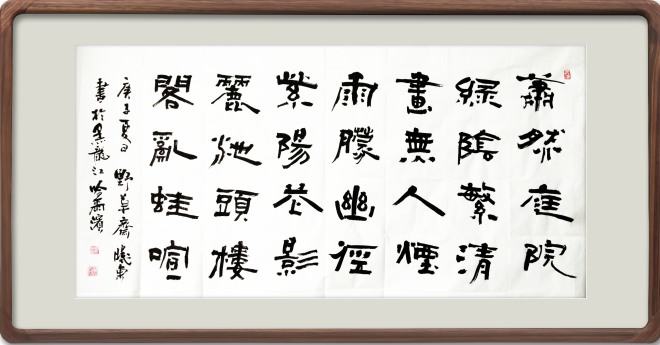 蕭然庭院
綠陰繁清
晝無人煙
雨朦幽徑
紫陽花影
麗池頭樓
閣亂蛙喧
庚子夏日 野草齋 曉東
書於黑龍江哈爾濱